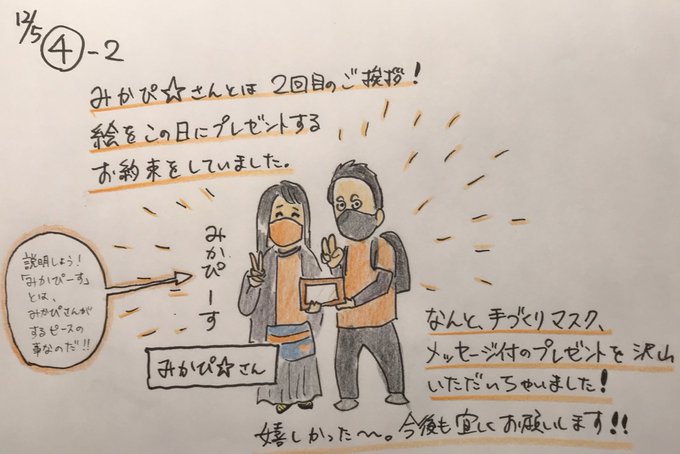 12/5 ④-2
みかぴ☆さんとは 2回目のご挨拶!
絵をこの日にプレゼントする
お約束をしていました。
みかぴーす
説明しよう!
「みかぴーす」
とは、
みかぴさんが
するピースの
事なのだ!!
みかぴ☆さん
なんと、手づくりマスク、
メッセージ付のプレゼントを沢山
いただいちゃいました!
嬉しかった〜。今後も宜しくお願いします!!